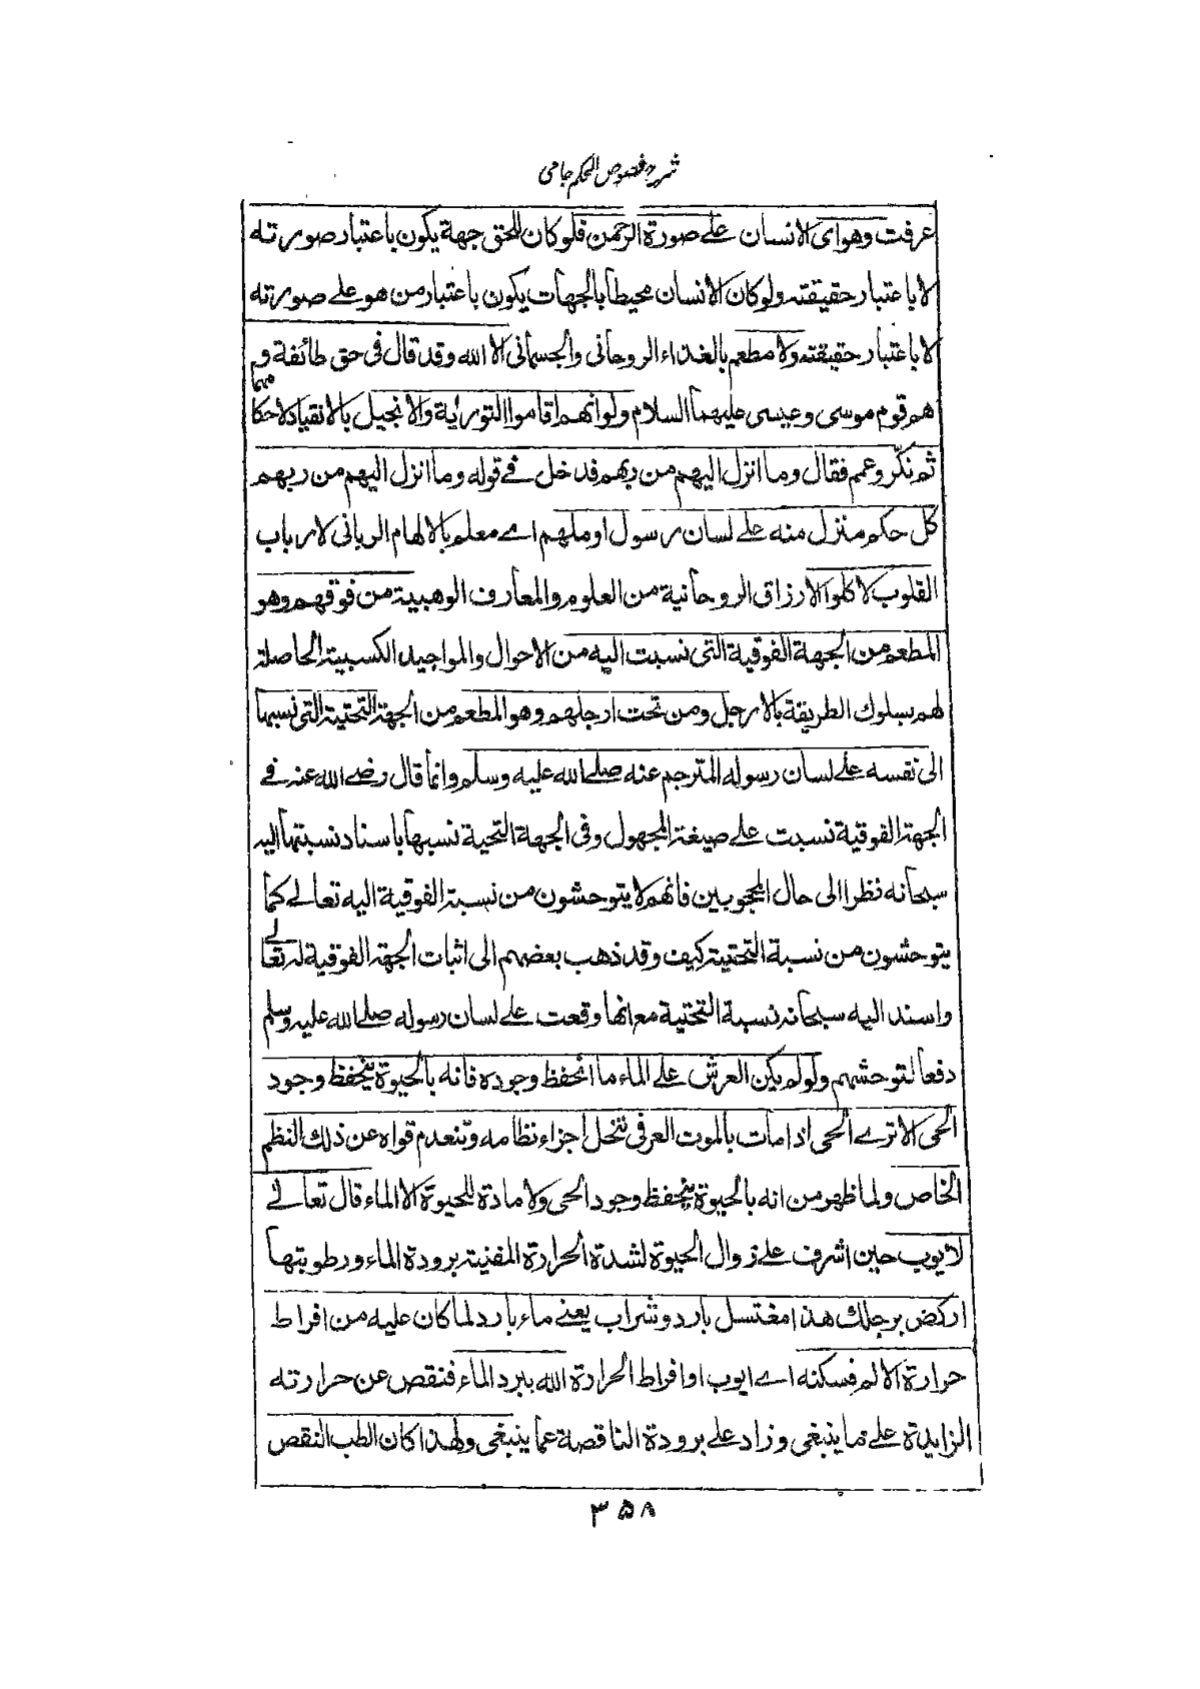 شرح فصوص الحكم جامى
عرفت وهواى الانسان على صورة الرحمن فلو كان للحق جهة يكون باعتبار صورته
لا باعتبار حقيقته ولو كان الانسان محيطا بالجهات يكون باعتبار من هو على صورته
لا باعتبار حقيقته ولا مطعم بالغذاء الروحانى والجسمانى الا الله وقد قال فى حق طائفة و
هم قوم موسى وعيسى عليهما السلام ولو انهم اقاموا التورىة والانجيل بالانقياد لاحكامهما
ثم نكّر وعمم فقال وما انزل اليهم من ربهم فدخل فے قوله وما انزل اليهم من ربهم
كل حكم منزل منه على لسان رسول او ملهم اے معلم بالالهام الربانى لارباب
القلوب لاكلوا الارزاق الروحانية من العلوم والمعارف الوهبية من فوقهم وهو
المطعم من الجهة الفوقية التى نسبت اليه من الاحوال والمواجيد الكسبية الحاصلة
لهم بسلوك الطريقة بالارجل ومن تحت ارجلهم وهو المطعم من الجهة التحتية التى نسبها
الى نفسه على لسان رسوله المترجم عنه صلے الله عليه وسلم وانما قال رضے الله عنه فے
الجهة الفوقية نسبت علے صيغة المجهول وفى الجهة التحية نسبها باسناد نسبتها اليه
سبحانه نظرا الى حال المحجوبين فانهم لا يتوحشون من نسبة الفوقية اليه تعالے كما
يتوحشون من نسبة التحتية كيف وقد ذهب بعضهم الى اثبات الجهة الفوقية له تعالے
واسند اليه سبحانه نسبة التحتية مع انها وقعت علے لسان رسوله صلے الله عليه وسلم
دفعا لتوحشهم ولو لم يكن العرش علے الماء ما انحفظ وجوده فانه بالحيوة ينحفظ وجود
الحى الا ترے الحى اذا مات بالموت العرفى تنحل اجزاء نظامه وتنعدم قواه عن ذلك النظم
الخاص ولما ظهر من انه بالحيوة ينحفظ وجود الحى ولا مادة للحيوة الا الماء قال تعالے
لايوب حين اشرف علے زوال الحيوة لشدة الحرارة المفنية برودة الماء ورطوبتها
اركض برجلك هذا مغتسل بارد وشراب يعنے ماء بارد لما كان عليه من افراط
حرارة الالم فسكنه اے ايوب او افراط الحرارة الله ببرد الماء فنقص عن حرارته
الزايدة علے ما ينبغى وزاد علے برودة الناقصة عما ينبغى ولهذا كان الطب النقص
٣٥٨